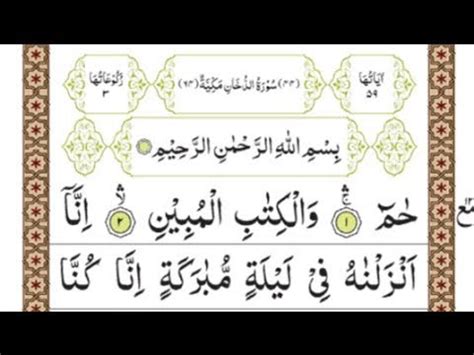 اٰيَاتُهَا ٥٩
(٤٤) سُوْرَةُ الدُّخَانِ مَكِّيَّةٌ (٦٤)
رُكُوْعَاتُهَا ٣
بِسْمِ اللهِ الرَّحْمٰنِ الرَّحِيْمِ
حٰمٓ ۚۛ ١ وَالْكِتٰبِ الْمُبِيْنِ ۙۛ ٢ اِنَّاۤ
اَنْزَلْنٰهُ فِيْ لَيْلَةٍ مُّبٰرَكَةٍ اِنَّا كُنَّا